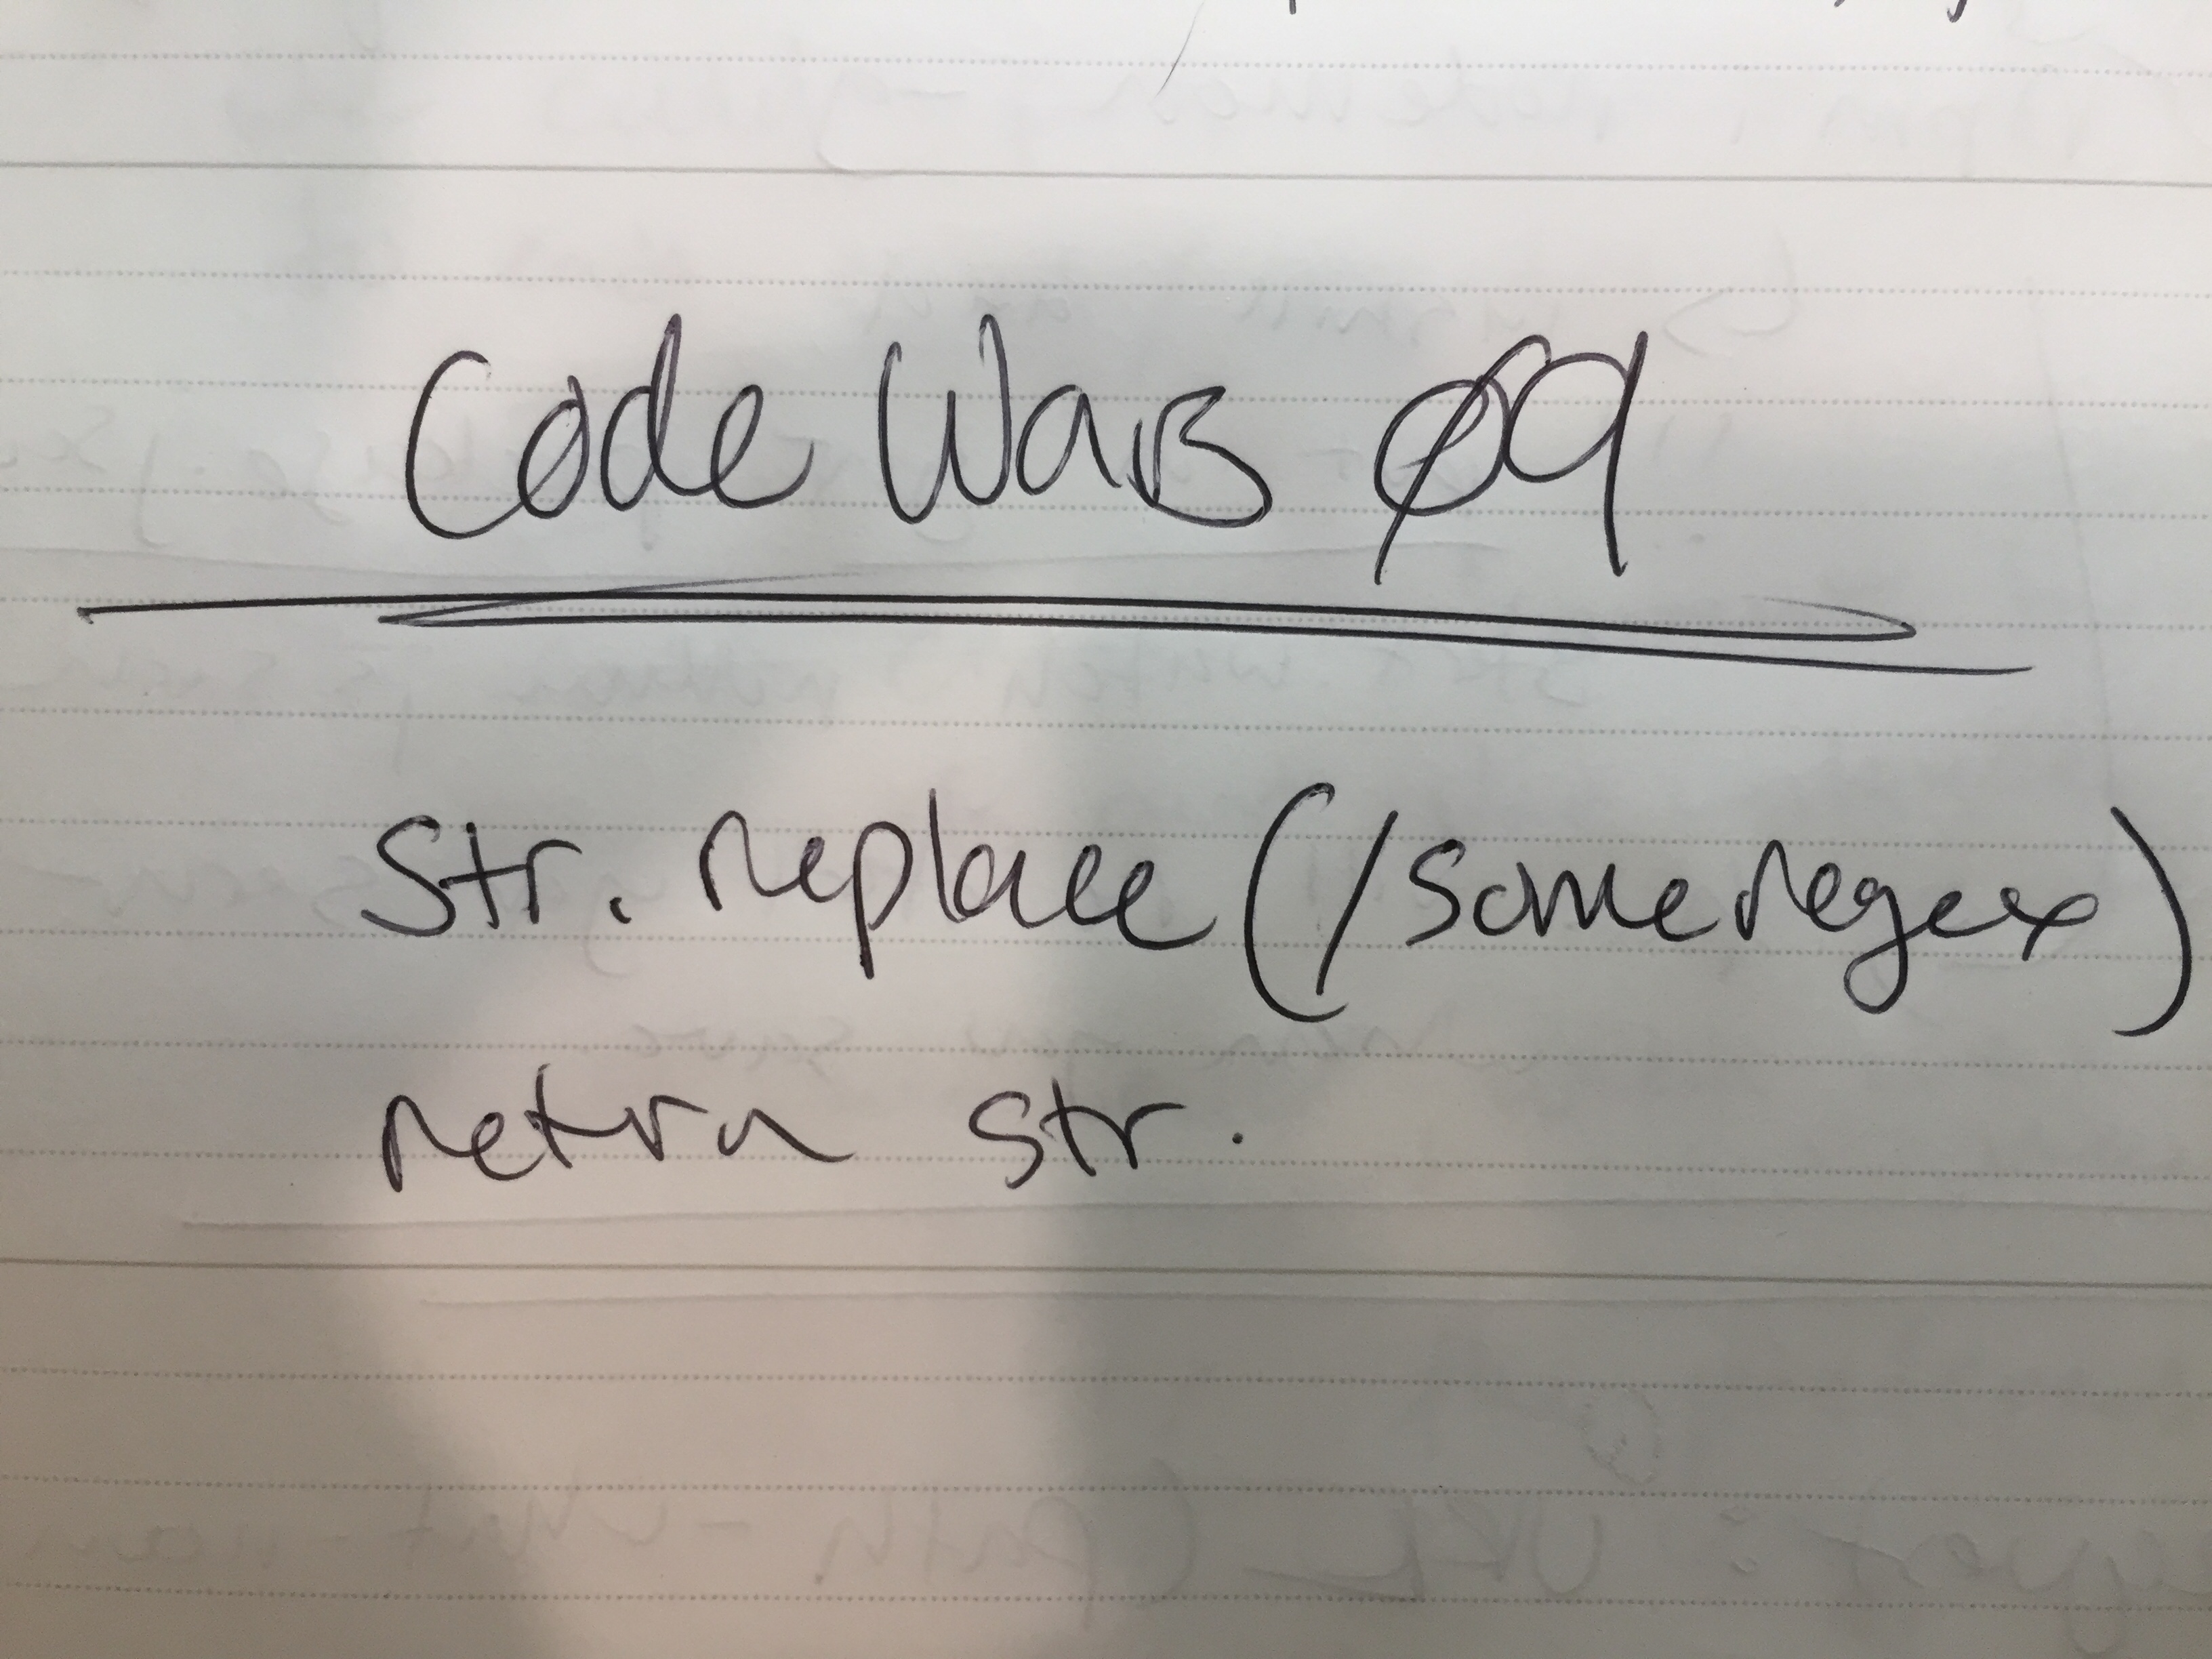 Code Wars Ø9
Str. replace (/some regex)
return str.